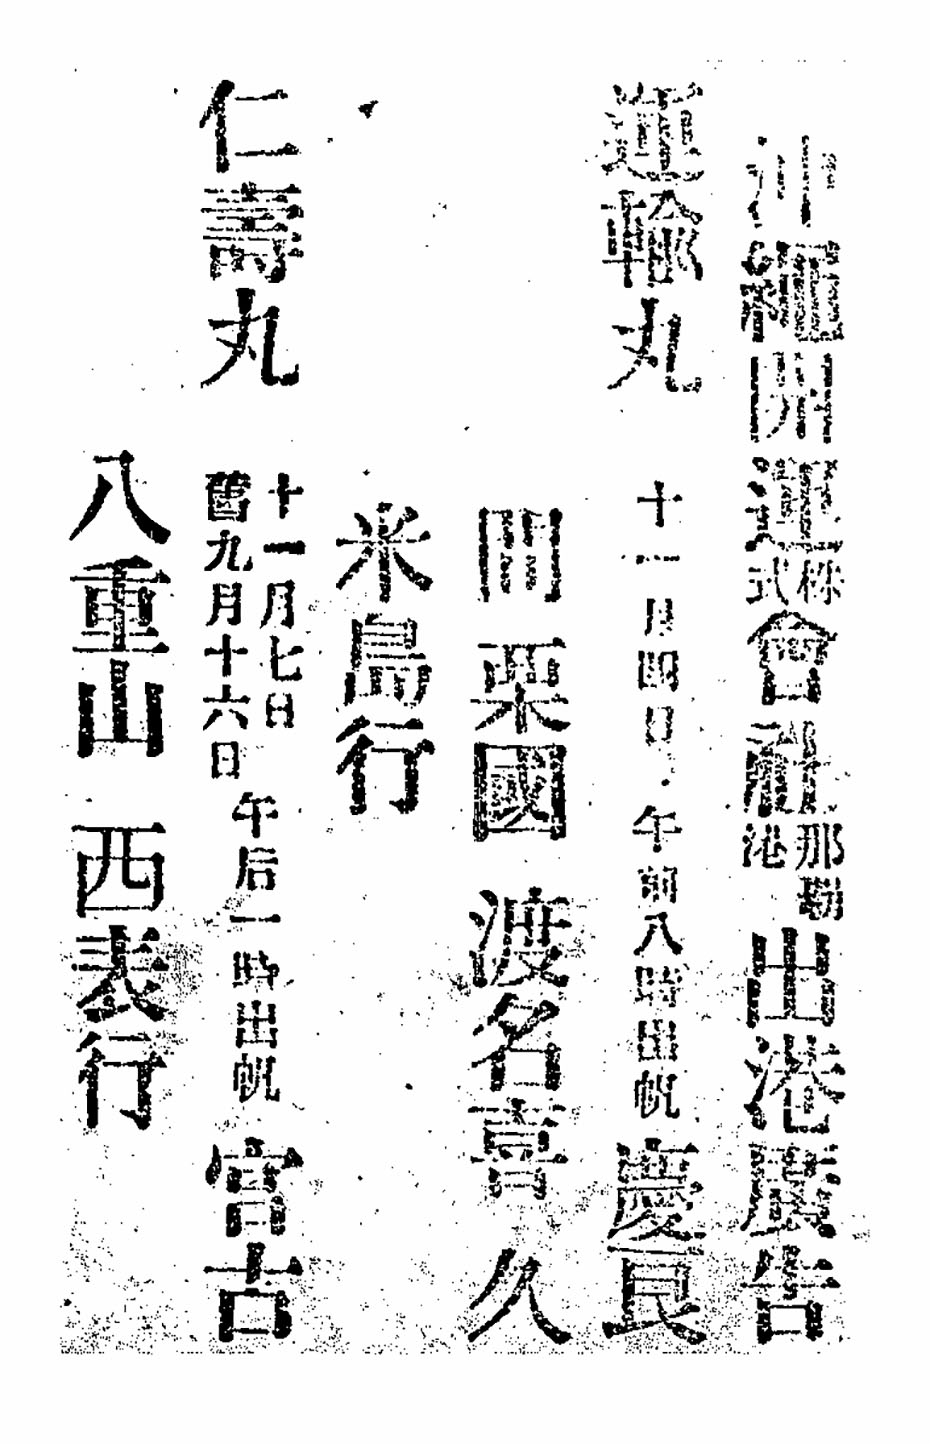 沖繩開運株式會社那覇港出港廣告
運輸丸 十一月四日、午前八時出帆 慶良
間 粟國 渡名喜 久
米島行
仁壽丸 十一月七日 舊九月十六日 午后一時出帆 宮古
八重山 西表行